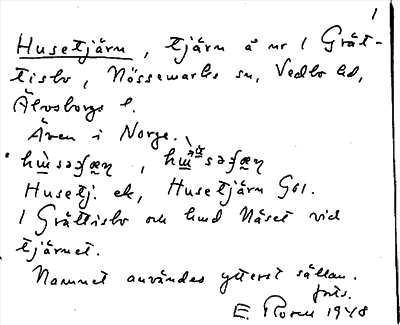 1
Husetjärn, tjärn å nr 1 Grät-
tisbo, Nössemarks sn, Vedbo hd,
Älvsborgs l.
Även i Norge.
Husetj. ek, Husetjärn G01.
1 Gråttisbo och hmd Näset vid
tjärnet.
Namnet användes ytterst sällan.
forts.
E. Rosen 1948